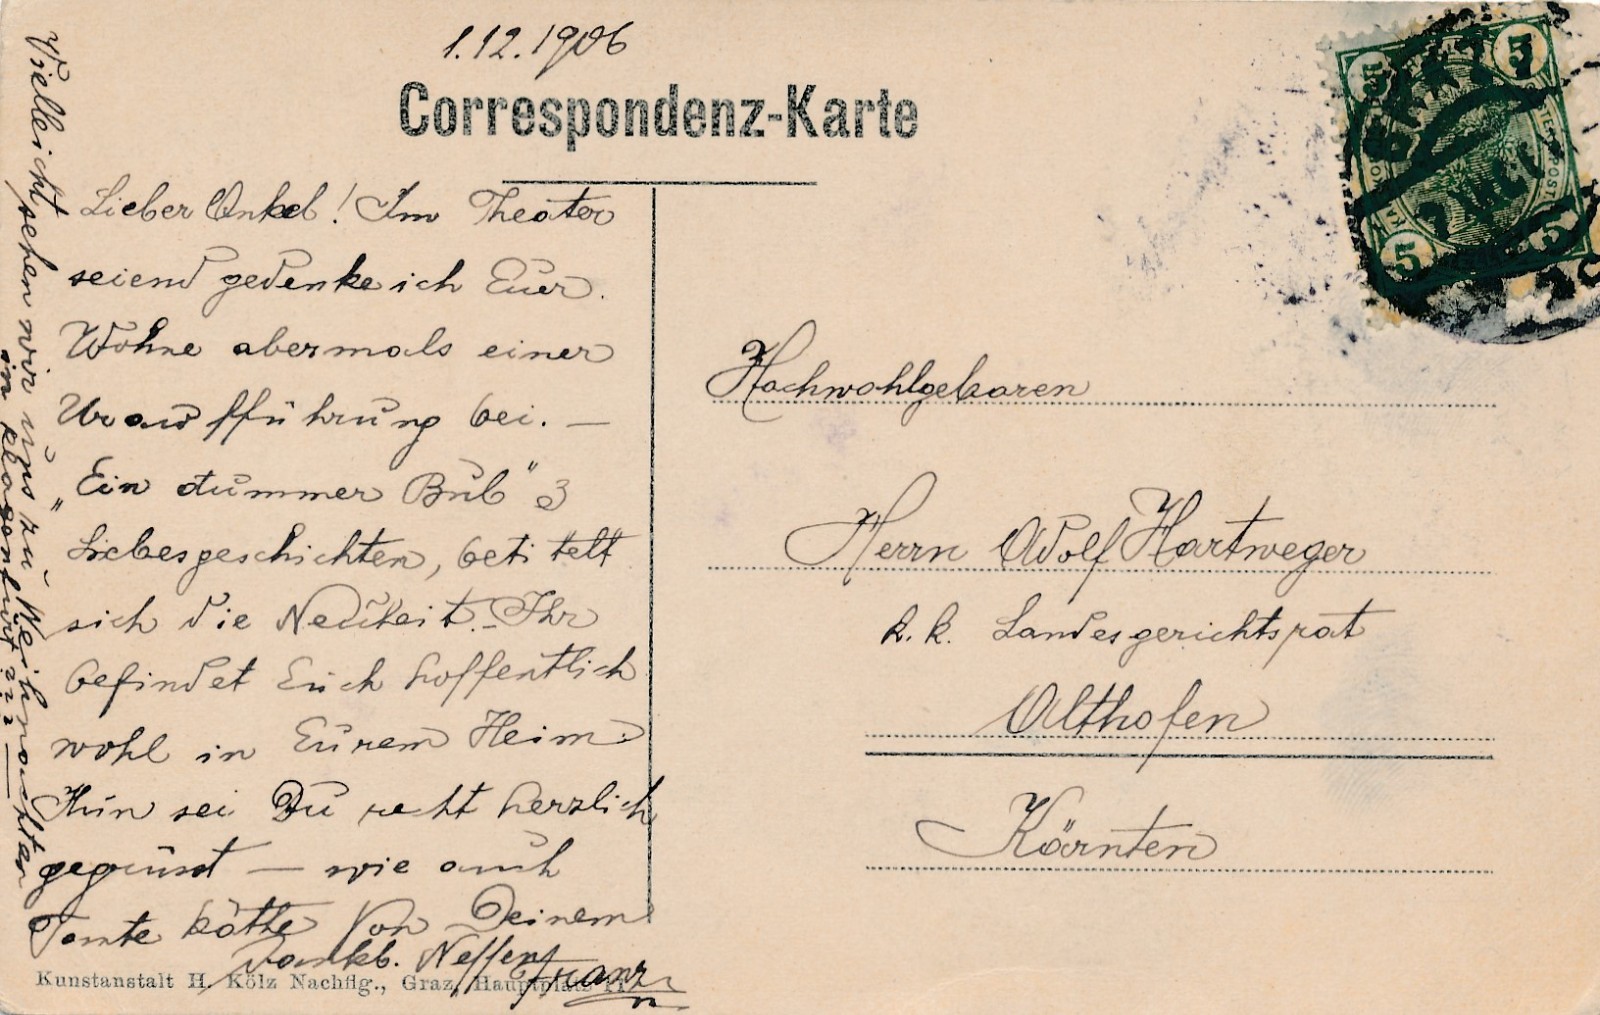 1.12.1906
Correspondenz-Karte
Lieber Onkel! Im Theater
seiend gedenke ich Euer.
Wohne abermals einer
Uraufführung bei. —
„Ein dummer Bub" 3
Liebesgeschichten, betitelt
sich die Neuheit. – Ihr
befindet Euch hoffentlich
wohl in Eurem Heim.
Nun sei Du recht herzlich
gegrüsst — wie auch
Tante Käthe von Deinem
dankb. Neffen Franz
Vielleicht sehen wir uns zu Weihnachten
in Klagenfurt ???
Hochwohlgeboren
Herrn Adolf Hartweger
k. k. Landesgerichtsrat
Althofen
Kärnten
Kunstanstalt H. Kölz Nachflg., Graz, Hauptplatz
5 5
5 5